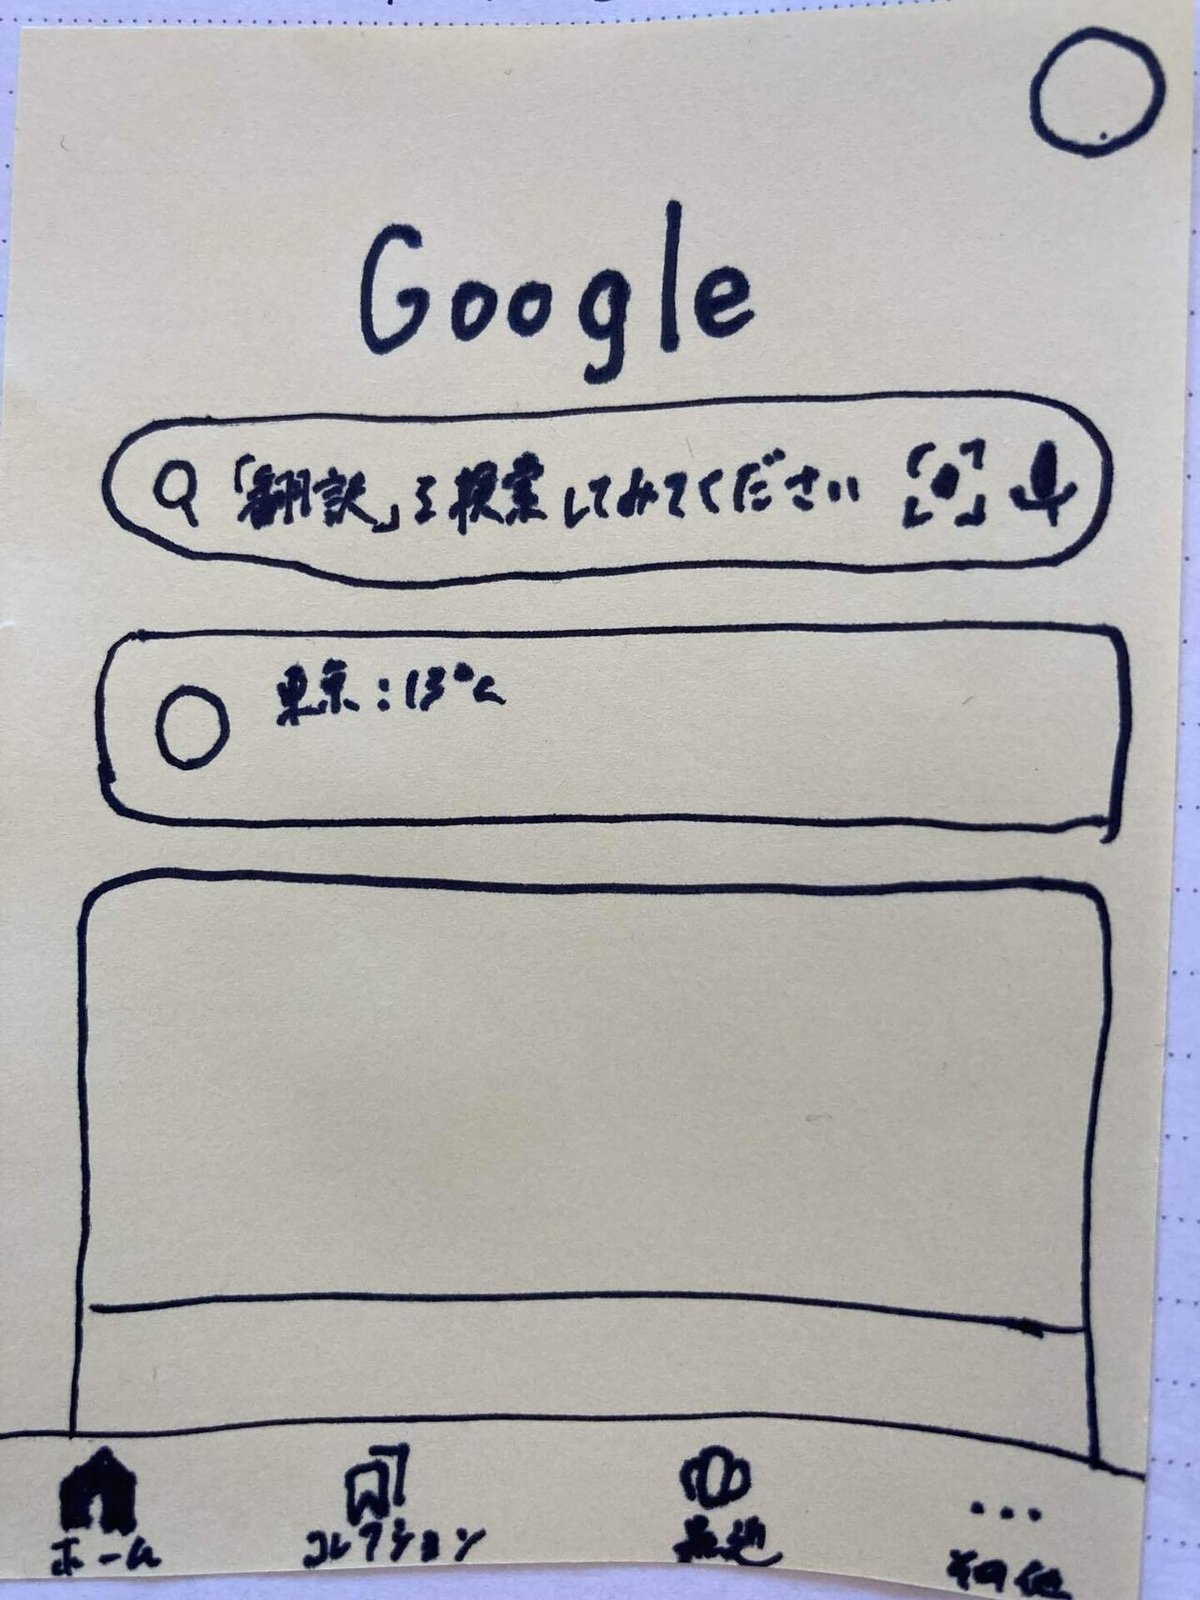 Google
「翻訳」を検索してみてください
東京:13°C
ホーム
コレクション
最近
その他